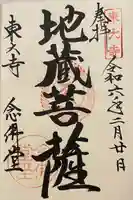 奉拝
令和六年二月廿日
地蔵菩薩
東大寺
念佛堂